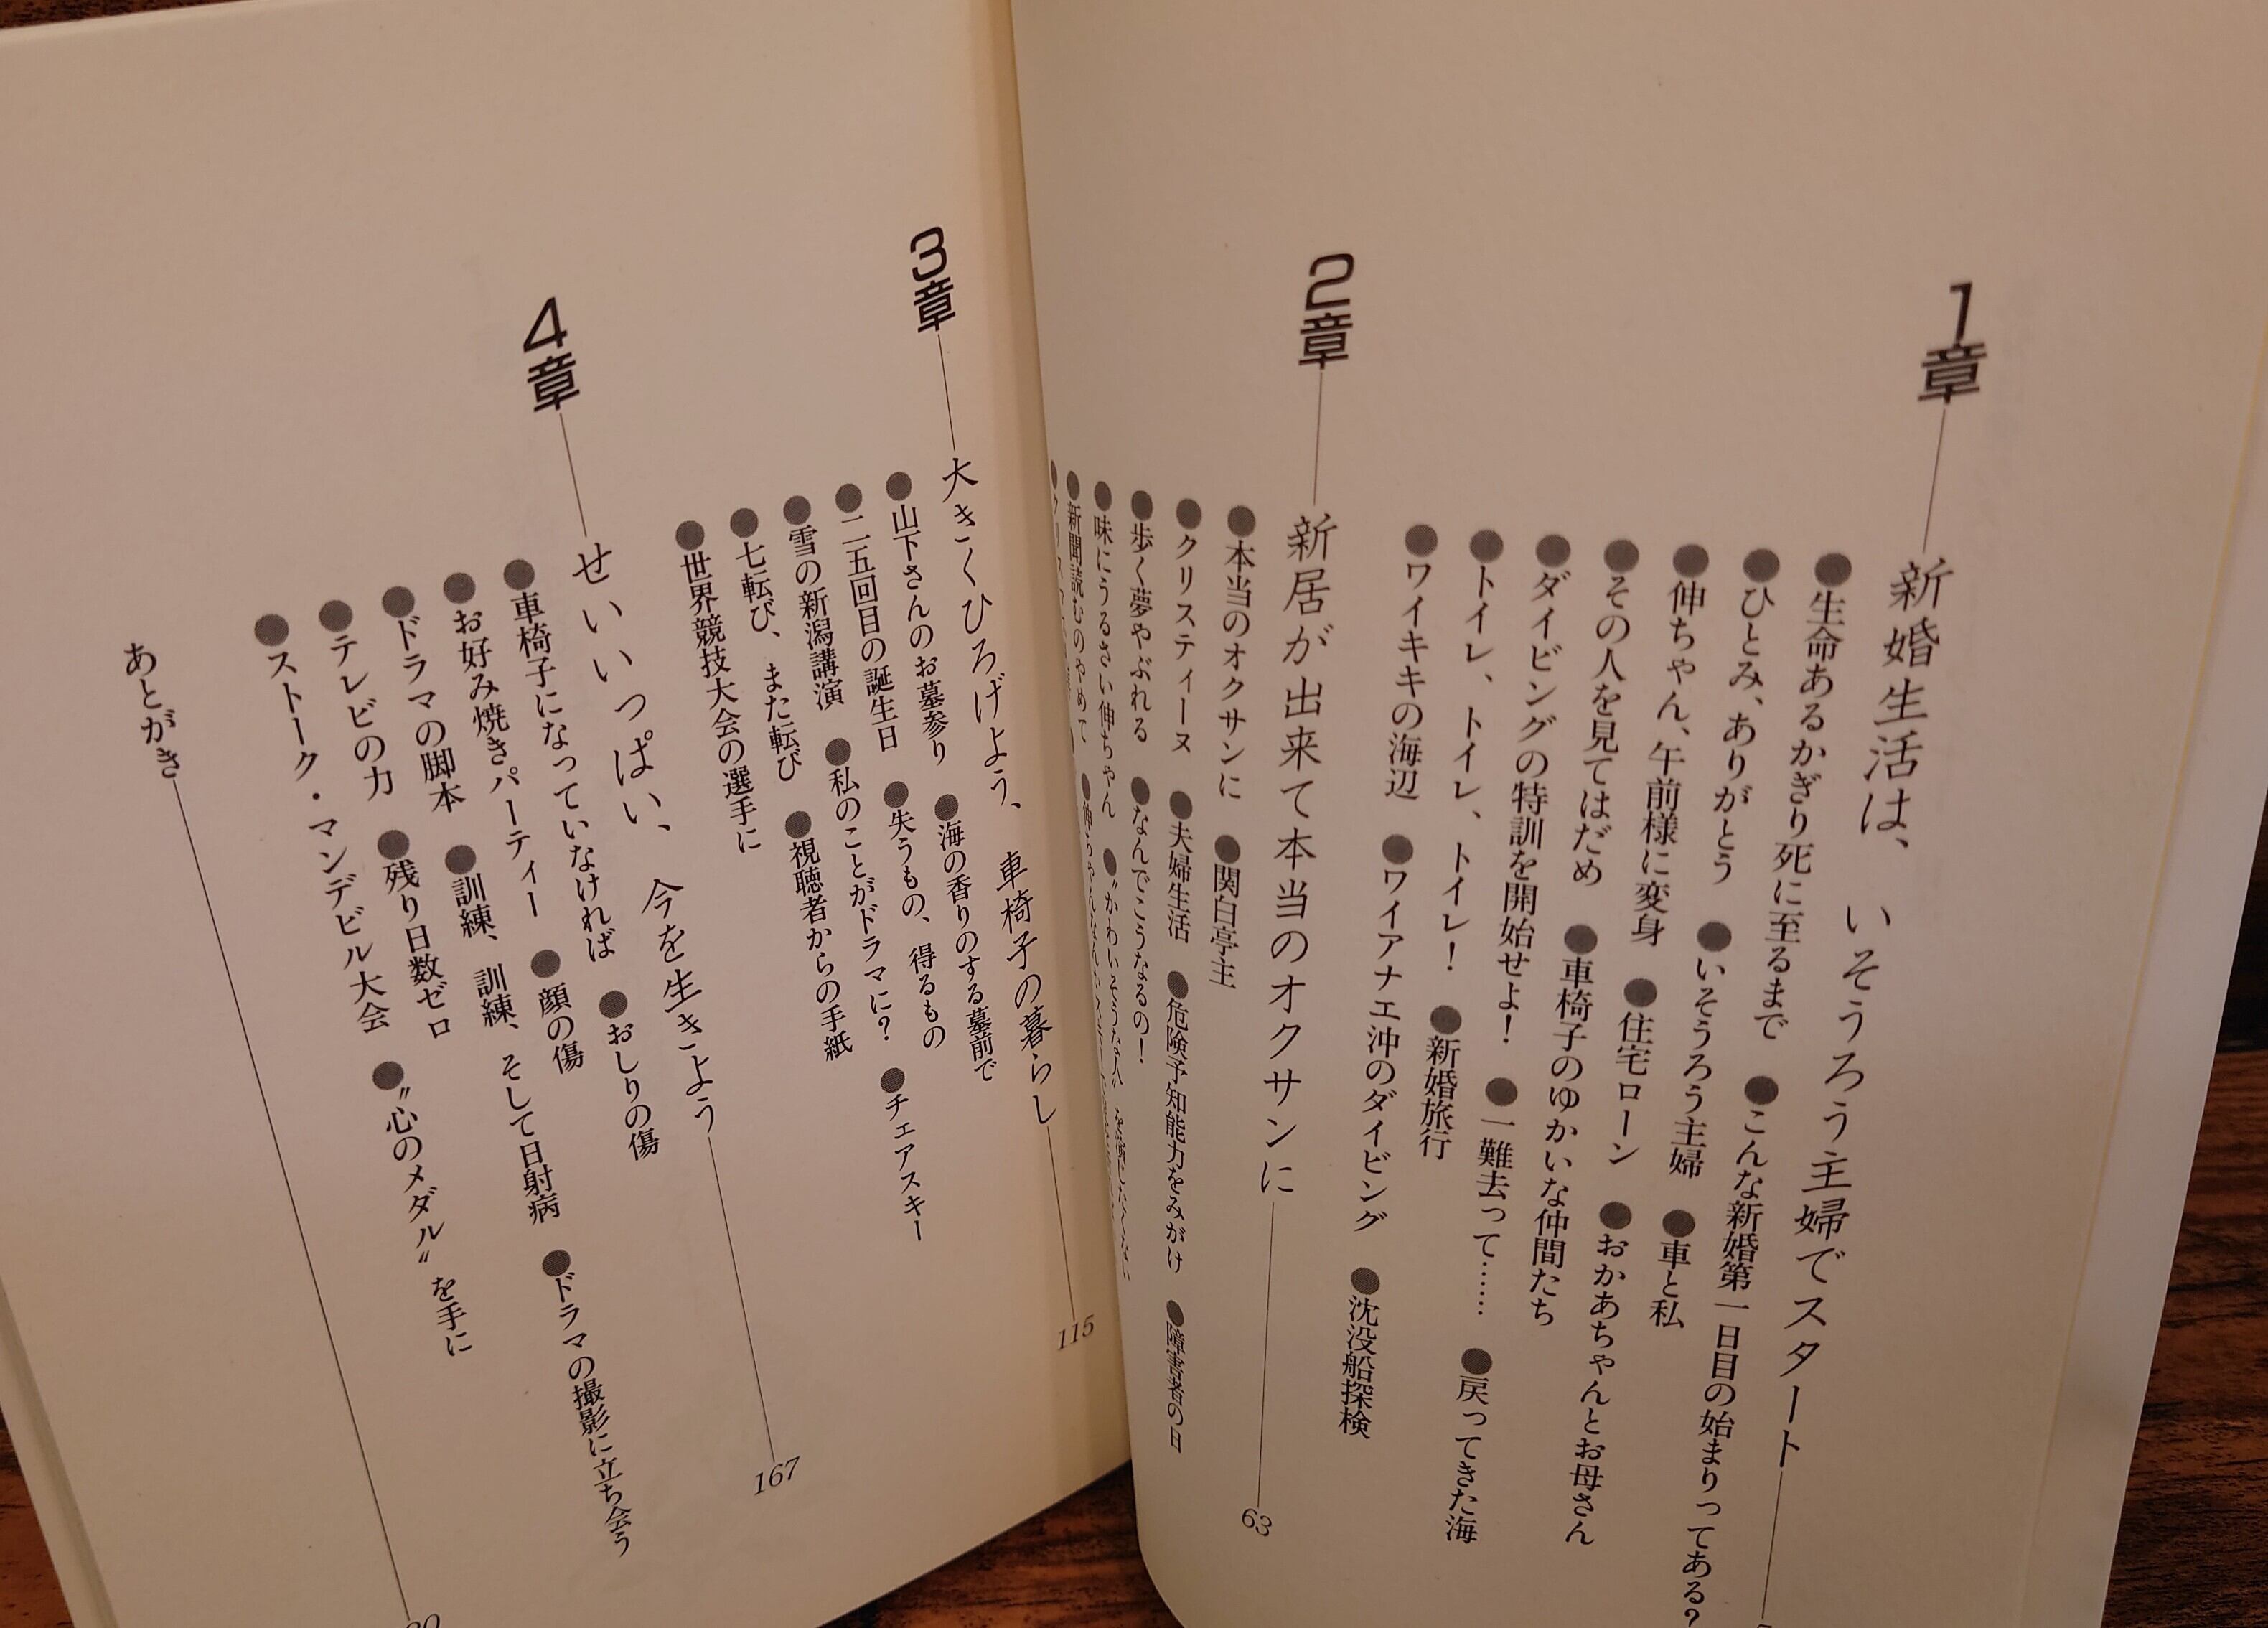 1章 新婚生活は、いそうろう主婦でスタート
●生命あるかぎり死に至るまで ●こんな新婚第一日目の始まりってある?
●ひとみ、ありがとう ●いそうろう主婦 ●車と私
●伸ちゃん、午前様に変身 ●住宅ローン ●おかあちゃんとお母さん
●その人を見てはだめ ●車椅子のゆかいな仲間たち
●ダイビングの特訓を開始せよ! ●一難去って…… ●戻ってきた海
●トイレ、トイレ、トイレ! ●新婚旅行
●ワイキキの海辺 ●ワイアナエ沖のダイビング ●沈没船探検
2章 新居が出来て本当のオクサンに 63
●本当のオクサンに ●関白亭主
●クリスティーヌ ●夫婦生活 ●危険予知能力をみがけ ●障害者の日
●歩く夢やぶれる ●なんでこうなるの!
●味にうるさい伸ちゃん ●〝かわいそうな人〟
●新聞読むのやめて
3章 大きくひろげよう、車椅子の暮らし 115
●山下さんのお墓参り ●海の香りのする墓前で
●二五回目の誕生日 ●失うもの、得るもの
●雪の新潟講演 ●私のことがドラマに? ●チェアスキー
●七転び、また転び ●視聴者からの手紙
●世界競技大会の選手に
4章 せいいっぱい、今を生きよう 167
●車椅子になっていなければ ●おしりの傷
●お好み焼きパーティー ●顔の傷
●ドラマの脚本 ●訓練、訓練、そして日射病 ●ドラマの撮影に立ち会う
●テレビの力 ●残り日数ゼロ
●ストーク・マンデビル大会 ●〝心のメダル〟を手に
あとがき